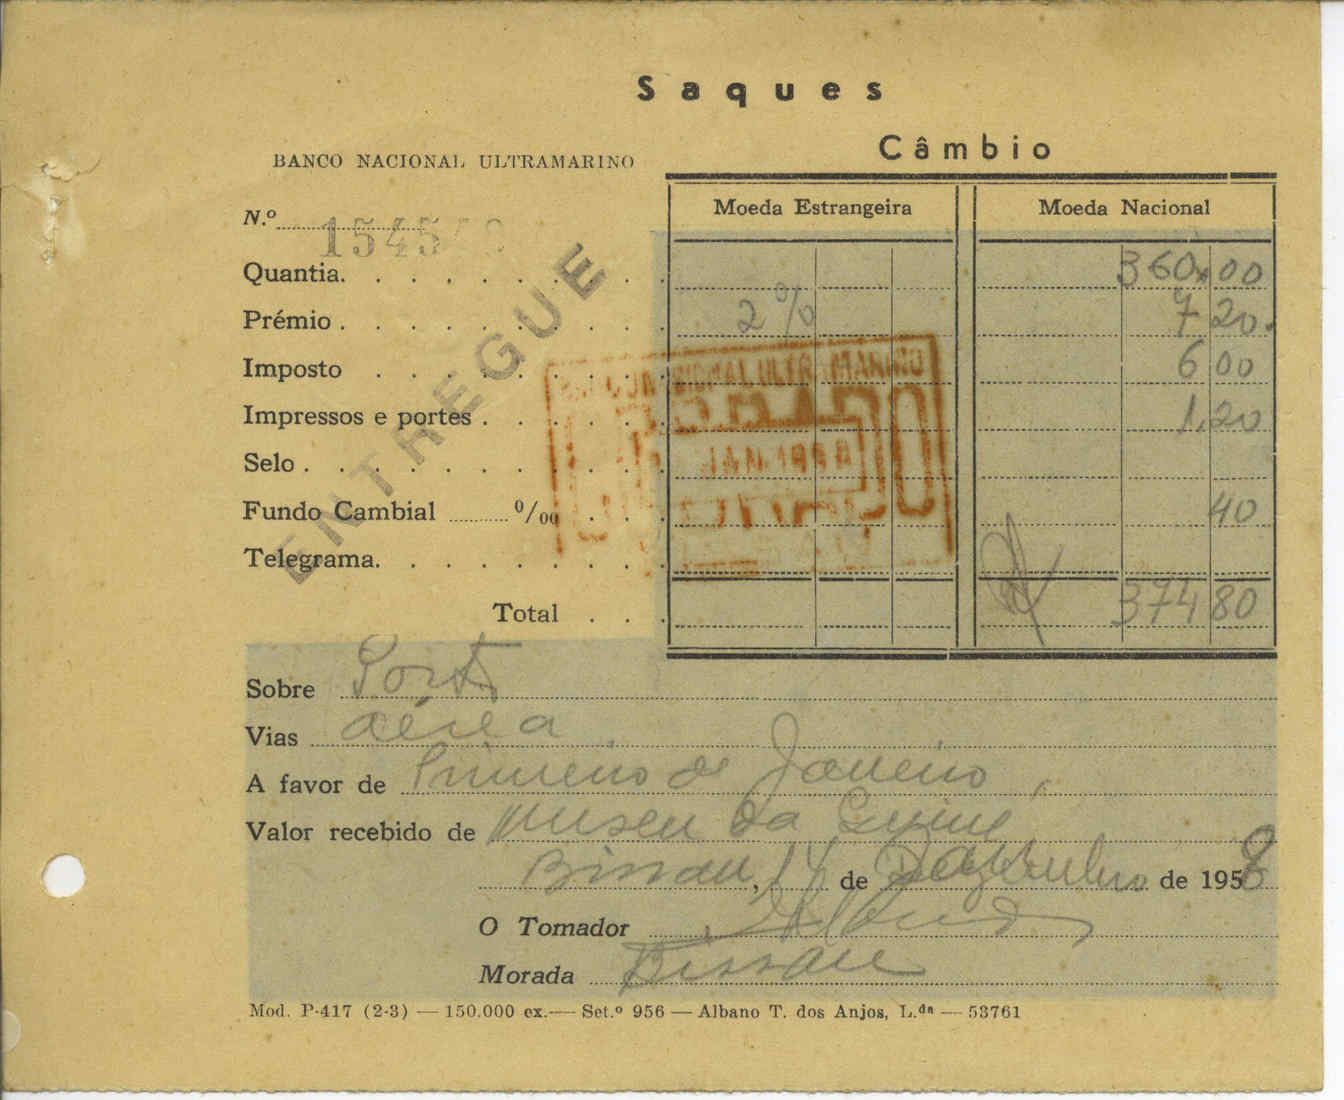 Saques
Câmbio
BANCO NACIONAL ULTRAMARINO
Moeda Estrangeira Moeda Nacional
N.º 1545
Quantia. 360.00
Prémio. 2% 7 20.
Imposto 6 00
Impressos e portes. 1.20
Selo.
Fundo Cambial ...0/00 40
Telegrama.
Total 374 80
ENTREGUE
NACIONAL ULTRAMARINO
Sobre Porto
Vias aérea
A favor de Primeiro de Janeiro,
Valor recebido de Museu da Guiné
Bissau, 14 de Dezembro de 1958
O Tomador
Morada Bissau
Mod. P-417 (2-3) — 150.000 ex. — Set.º 956 — Albano T. dos Anjos, L.da — 53761